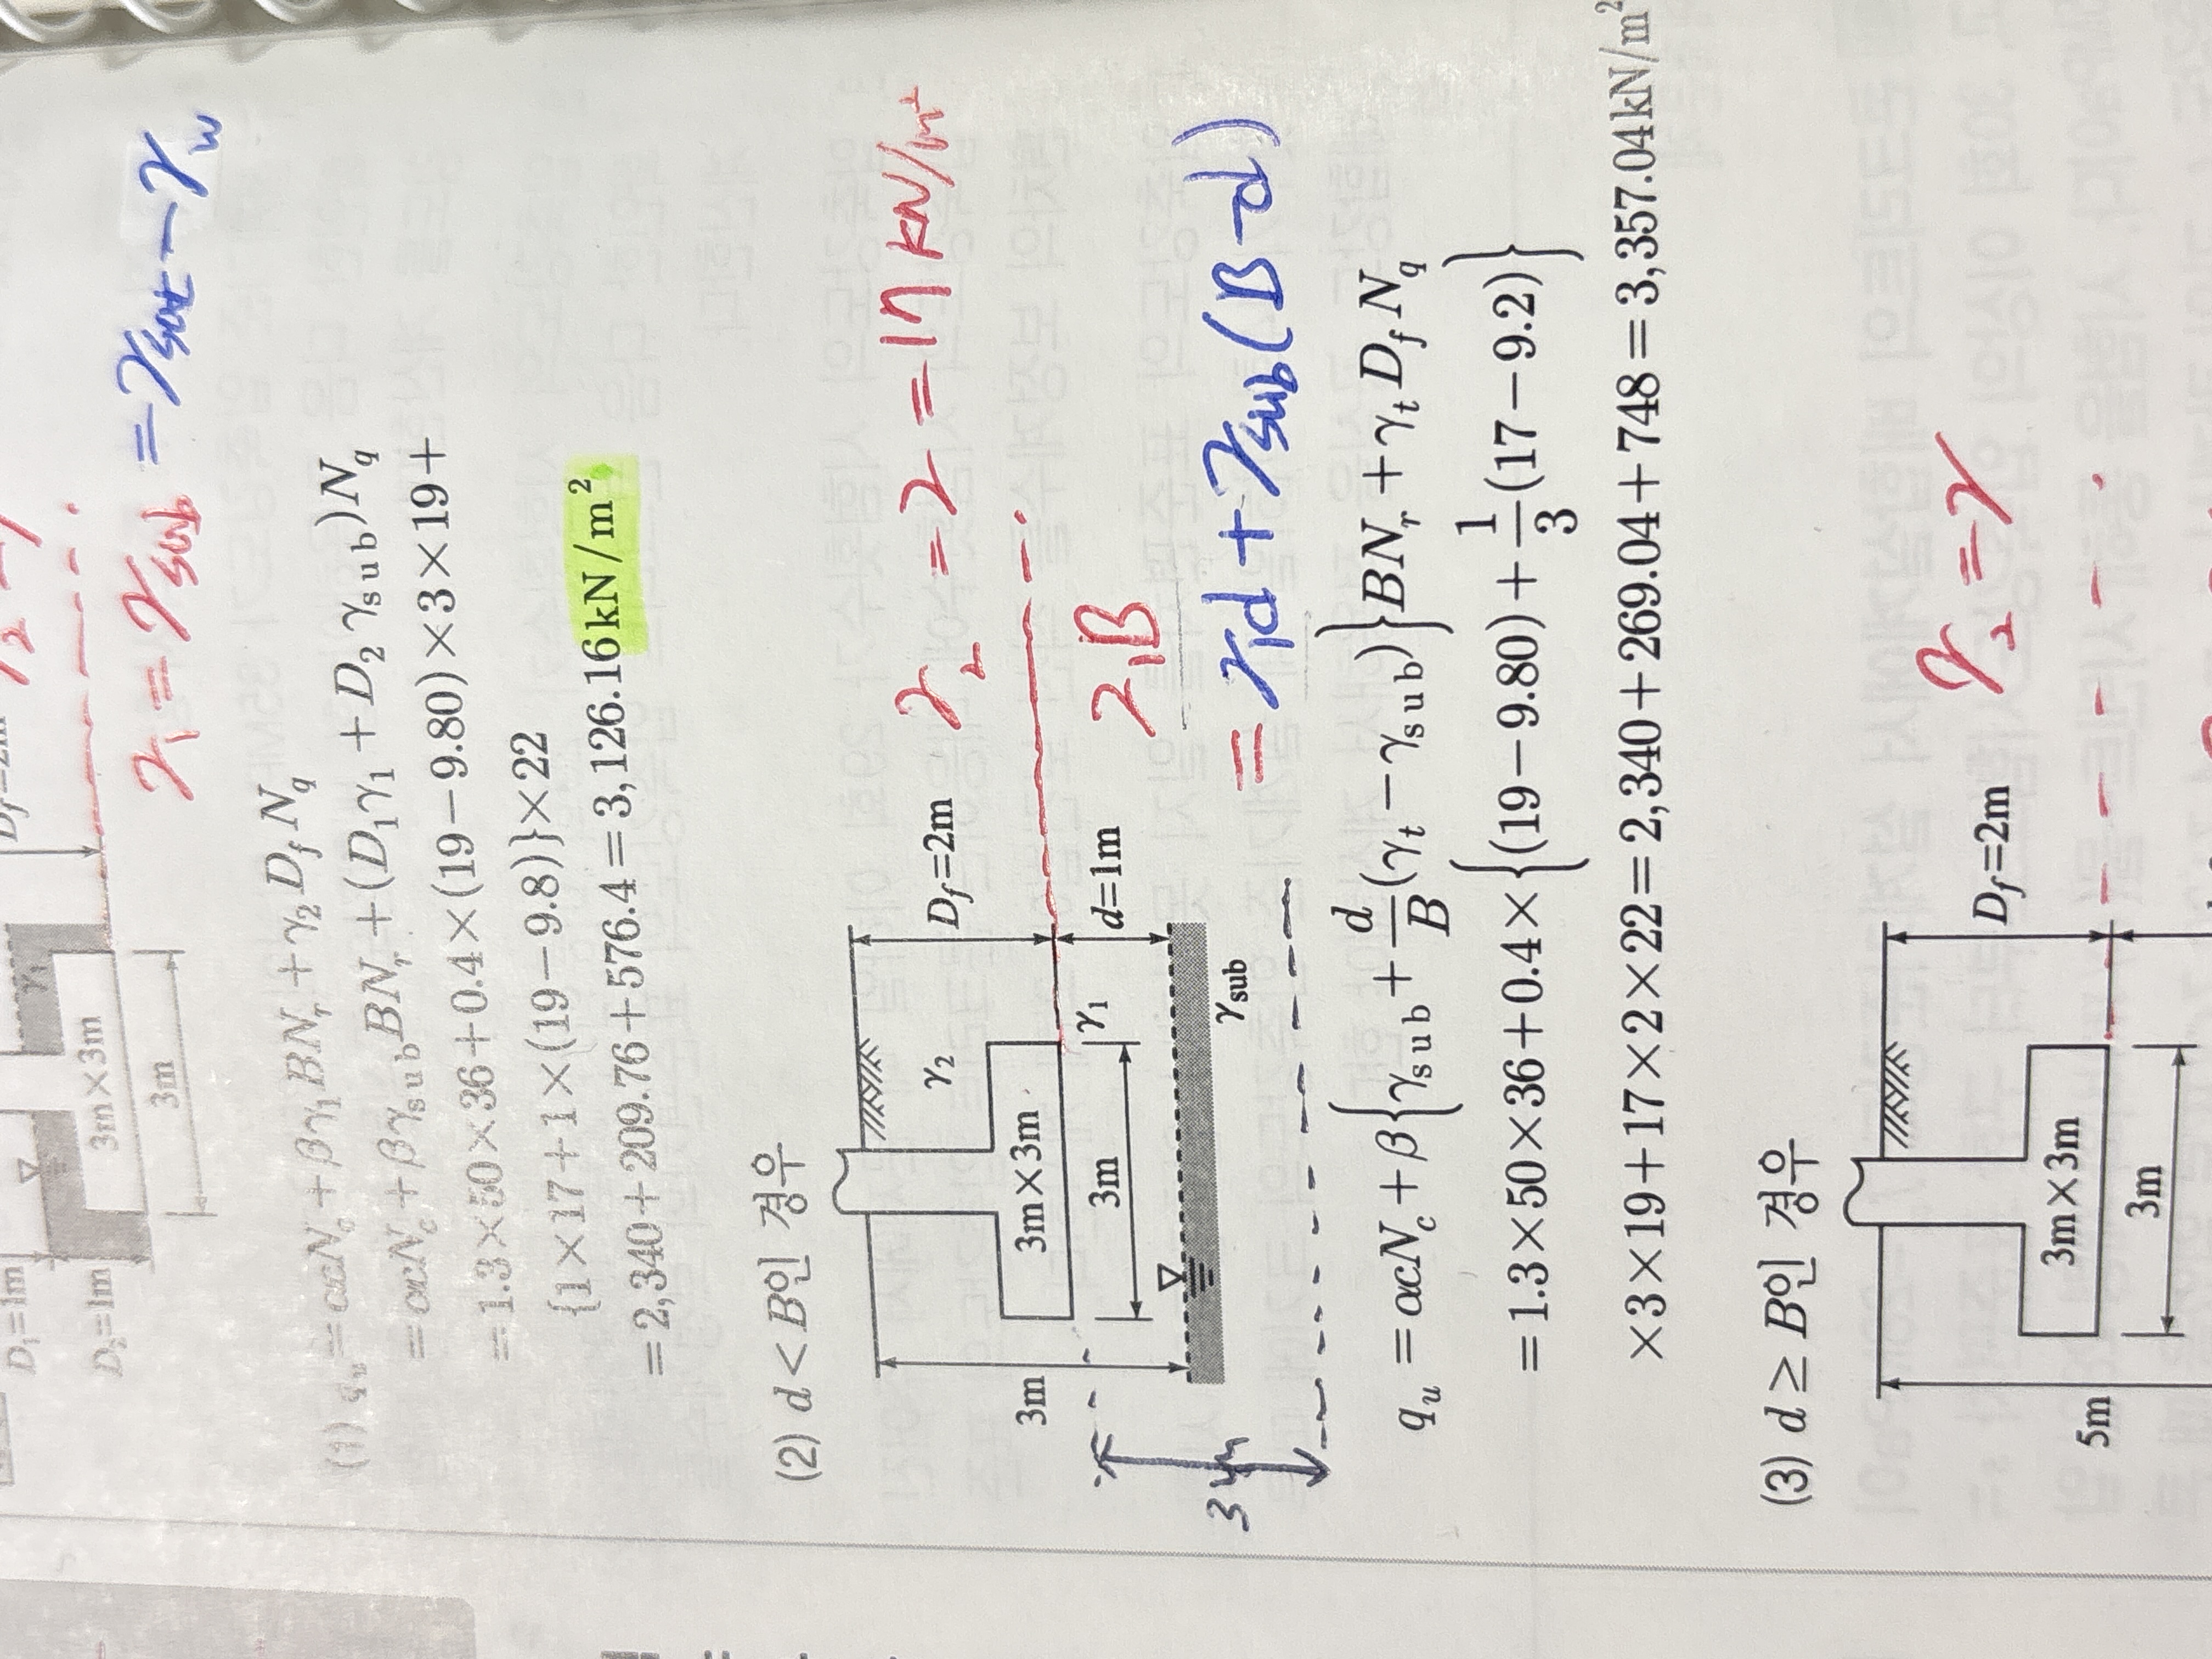 D₁=1m
D₂=1m
γ₁
3m×3m
3m
γ₁=γsub =γsat-γw
(1) qᵤ=αcN_c+βγ₁BN_r+γ₂D_fN_q
=αcN_c+βγ_subBN_r+(D₁γ₁+D₂γ_sub)N_q
=1.3×50×36+0.4×(19-9.80)×3×19+
{1×17+1×(19-9.8)}×22
=2,340+209.76+576.4=3,126.16kN/m²
(2) d<B인 경우
γ₂
D_f=2m
γ₂=γ=17kN/m²
3m×3m
3m
3m
γ₁
d=1m
γ₁B
γ_sub
=γ₁d+γsub(B-d)
3m
qᵤ=αcN_c+β{γ_sub+d/B(γ_t-γ_sub)}BN_r+γ_tD_fN_q
=1.3×50×36+0.4×{(19-9.80)+1/3(17-9.2)}
×3×19+17×2×22=2,340+269.04+748=3,357.04kN/m²
(3) d≥B인 경우
D_f=2m
γ₂=γ
3m×3m
5m
3m